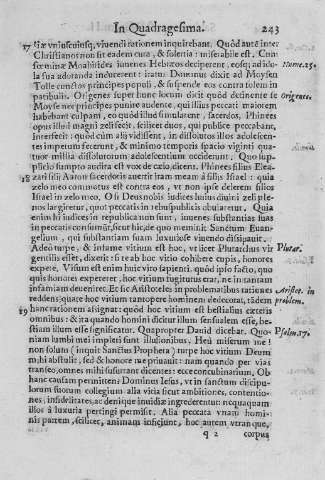 In Quadragesima. 243
17 tiæ vniuscuiusq; viuendi rationem inquirebant. Quòd autẽ inter
Christianos non sit eadem cura, & solertia: miserabile est. Cum
fœminæ Moabitides iuuenes Hebræos deciperent, eosq; ad idola Nume.25.
la sua adoranda inducerent: iratus Dominus dixit ad Moysen
Tolle cunctos principes populi, & suspende eos contra solem in
patibulis. Origenes super hunc locum dicit quòd detinente se Origenes.
Moyse nec principes punire audente, qui illius peccati maiorem
habebant culpam, eo quòd illud simularent, sacerdos, Phinees
opus illud magni zeli fecit, scilicet duos, qui publicè peccabant,
interfecit: quòd cùm alij vidissent, in dissolutos illos adolescentes
impetum fecerunt, & minimo temporis spacio viginti quatuor
millia dissolutorum adolescentium occiderunt. Quo supplicio
sumpto audita est vox de cælo, dicens. Phinees filius Eleazari
18 filij Aaron sacerdotis auertit iram meam à filijs Israel: quia
zelo meo commotus est contra eos, vt non ipse delerem filios
Israel in zelo meo. O si Deus nobis iudices huius diuini zeli plenos
largiretur, quot peccatis in rebuspublicis obuiaretur. Quia
enim hi iudices in republica non sunt, iuuenes substantias suas
in peccatis consumũt, sicut hic, de quo meminit Sanctum Euangelium,
qui substantiam suam luxuriosè viuendo dissipauit.
Adeò turpe, & infame vitium est hoc, vt licet Plutarchus vir Plutar.
gentilis esset, dixerit: si te ab hoc vitio cohibere cupis, honores
expete. Visum est enim huic viro sapienti. quòd ipso facto, quo
quis honores expeteret, hoc vitium fugiturus erat, ne in tantam
infamiam deueniret. Et sic Aristoteles in problematibus rationes Aristot. in
reddens; quare hoc vitium tantopere hominem dedecorat, tãdem problem.
19 hanc rationem assignat: quòd hoc vitium est bestialius cæteris
omnibus: & ita quando homini dicitur illum sensualem esse, bestiam
illum esse significatur. Quapropter Dauid dicebat. Quoniam Psalm.37.
lumbi mei impleti sunt illusionibus, Heu miserum me!
non solum (inquit Sanctus Propheta) turpe hoc vitium Deum
mihi abstulit, sed & honore me priuauit: nam quando per vias
transeo, omnes mihi susurrant dicentes: ecce concubinarium, Ob
hanc causam permittens Dominus Iesus, vt in sanctum discipulorum
suorum collegium alia vitia sicut ambitiones, contentiones,
infidelitates, ac denique inuidiæ ingrederentur: nequaquam
illos à luxuria pertingi permisit. Alia peccata vnam hominis
partem, scilicet, animam inficiunt, hoc autem vtranque,
q 2 corpus